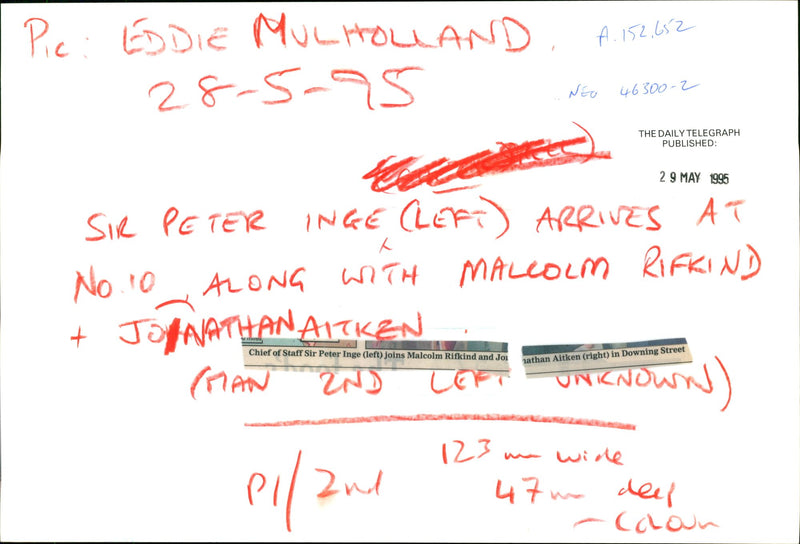 Pic: EDDIE MULHOLLAND. A.152,652
28-5-95
NEG 46300-2
THE DAILY TELEGRAPH
PUBLISHED:
29 MAY 1995
SIR PETER INGE (LEFT) ARRIVES AT
No.10, ALONG WITH MALCOLM RIFKIND
+ JONATHAN AITKEN.
Chief of Staff Sir Peter Inge (left) joins Malcolm Rifkind and Jonathan Aitken (right) in Downing Street
(MAN 2ND LEFT UNKNOWN)
P1/2nd
123 mm wide
47mm deep
- Colour